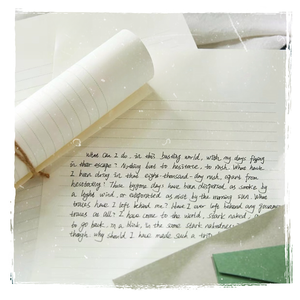 What can I do, in this bustling world, with my days flying
in their escape? Nothing but to hesitate, to rush. What have
I been doing in that eight-thousand-day rush, apart from
hesitating? Those bygone days have been dispersed as smoke by
a light wind, or evaporated as mist by the morning sun. What
traces have I left behind me? Have I ever left behind any gossamer
traces at all? I have come to the world, stark naked; am I
to go back, in a blink, in the same stark nakedness?
though: why should I have made such a trip